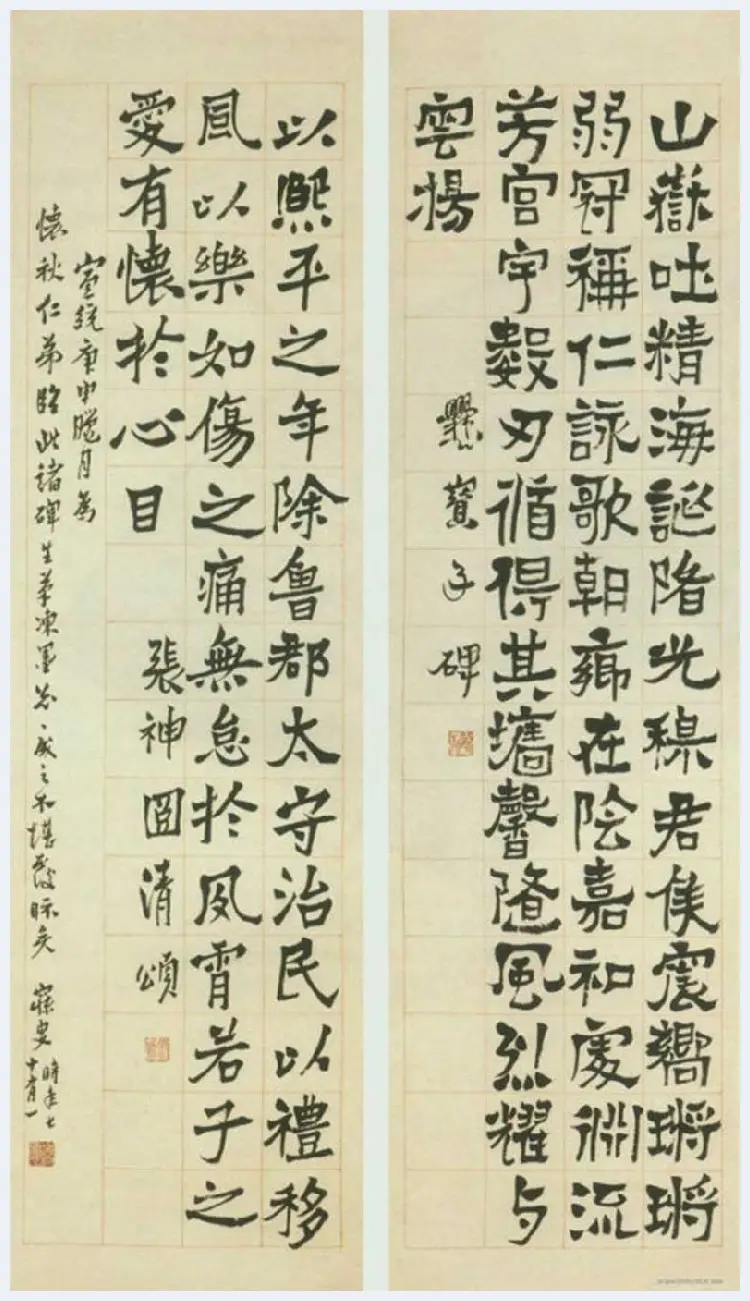 山嶽吐精海誕陏光穆君侯震嚮鏘鏘
弱冠稱仁詠歌朝鄉在陰嘉和處淵流
芳宮宇數仞循得其墻馨隨風烈耀与
雲揚
爨寶子碑
以熙平之年除魯郡太守治民以禮移
風以樂如傷之痛無怠於夙霄若子之
愛有懷於心目
張神囧清頌
宣統庚申臘月為
懷秋仁弟臨此諸碑
寐叟時年七
十有一